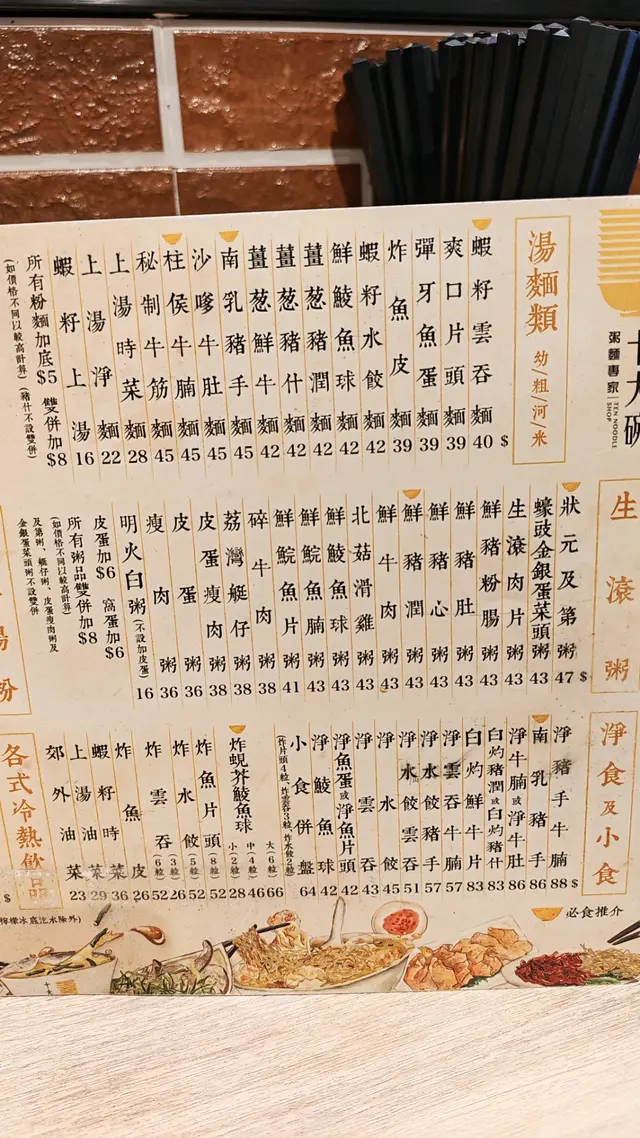 十大碗
粥麵專家
TEN NOODLE SHOP
湯麵類
幼/粗/河/米
$
蝦籽雲吞麵 40
爽口片頭麵 39
彈牙魚蛋麵 39
炸魚皮麵 39
蝦籽水餃麵 42
鮮鯪魚球麵 42
薑葱豬潤麵 42
薑葱豬什麵 42
薑葱鮮牛麵 42
南乳豬手麵 45
沙嗲牛肚麵 45
柱侯牛腩麵 45
秘制牛筋麵 45
上湯時菜麵 28
上湯淨麵 22
蝦籽上湯 16
所有粉麵加底$5 雙併加$8
(如價格不同以較高計算) (豬什不設雙併)
生滾粥
$
狀元及第粥 47
蠔豉金銀蛋菜頭粥 43
生滾肉片粥 43
鮮豬粉腸粥 43
鮮豬肚粥 43
鮮豬心粥 43
鮮豬潤粥 43
鮮牛肉粥 43
北菇滑雞粥 43
鮮鯪魚球粥 43
鮮鯇魚腩粥 43
鮮鯇魚片粥 41
碎牛肉粥 38
荔灣艇仔粥 38
皮蛋瘦肉粥 38
皮蛋粥 36
瘦肉粥 36
明火白粥(不設加皮蛋) 16
皮蛋加$6 窩蛋加$6
所有粥品雙併加$8
(如價格不同以較高計算)
及第粥、艇仔粥、皮蛋瘦肉粥及
金銀蛋菜頭粥不設雙併
湯粉
淨食及小食
$
淨豬手牛腩 88
南乳豬手 86
淨牛腩或淨牛肚 86
白灼豬潤或白灼豬什 83
白灼鮮牛片 83
淨雲吞牛腩 57
淨水餃豬手 57
淨水餃雲吞 51
淨水餃 45
淨雲吞 43
淨魚蛋或淨魚片頭 42
淨鯪魚球 42
小食併盤 64
(炸片頭4粒、炸雲吞3粒、炸水餃2粒)
炸蜆芥鯪魚球 大(6粒) 66 中(4粒) 46 小(2粒) 28
炸魚片頭(8粒) 52 
炸水餃(5粒) 52 (3粒) 26
炸雲吞(6粒) 52
炸魚皮 26
蝦籽時菜 36
上湯油菜 29
郊外油菜 23
各式冷熱飲品
$
必食推介